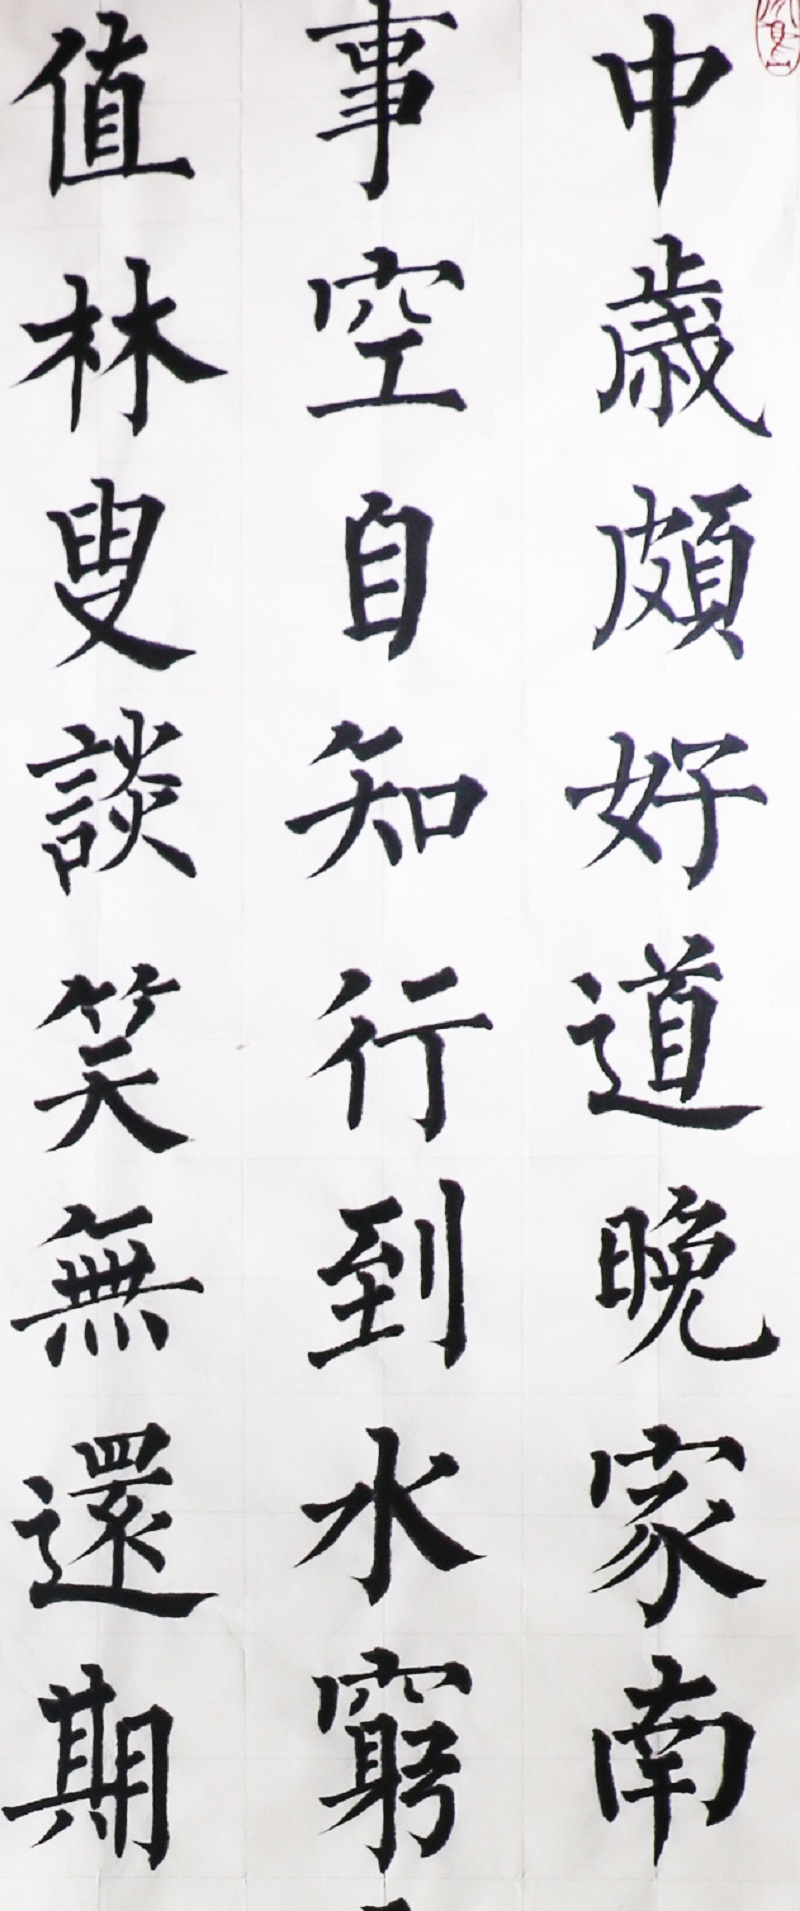 中歲頗好道晚家南
事空自知行到水窮
值林叟談笑無還期